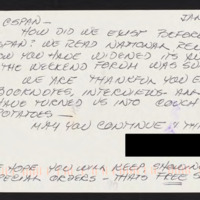 CSPAN – JAN
HOW DID WE EXIST BEFORE
SPAN? WE READ NATIONAL REV
YOU HAVE WIDENED ITS
THE WEEKEND FORUM WAS
WE ARE THANKFUL YOU
BOOKNOTES, INTERVIEWS AND
HAVE TURNED US INTO COUCH
POTATOES –
MAY YOU CONTINUE
HOPE YOU WILL KEEP SHOWING
SPECIAL ORDERS – THATS FREE S